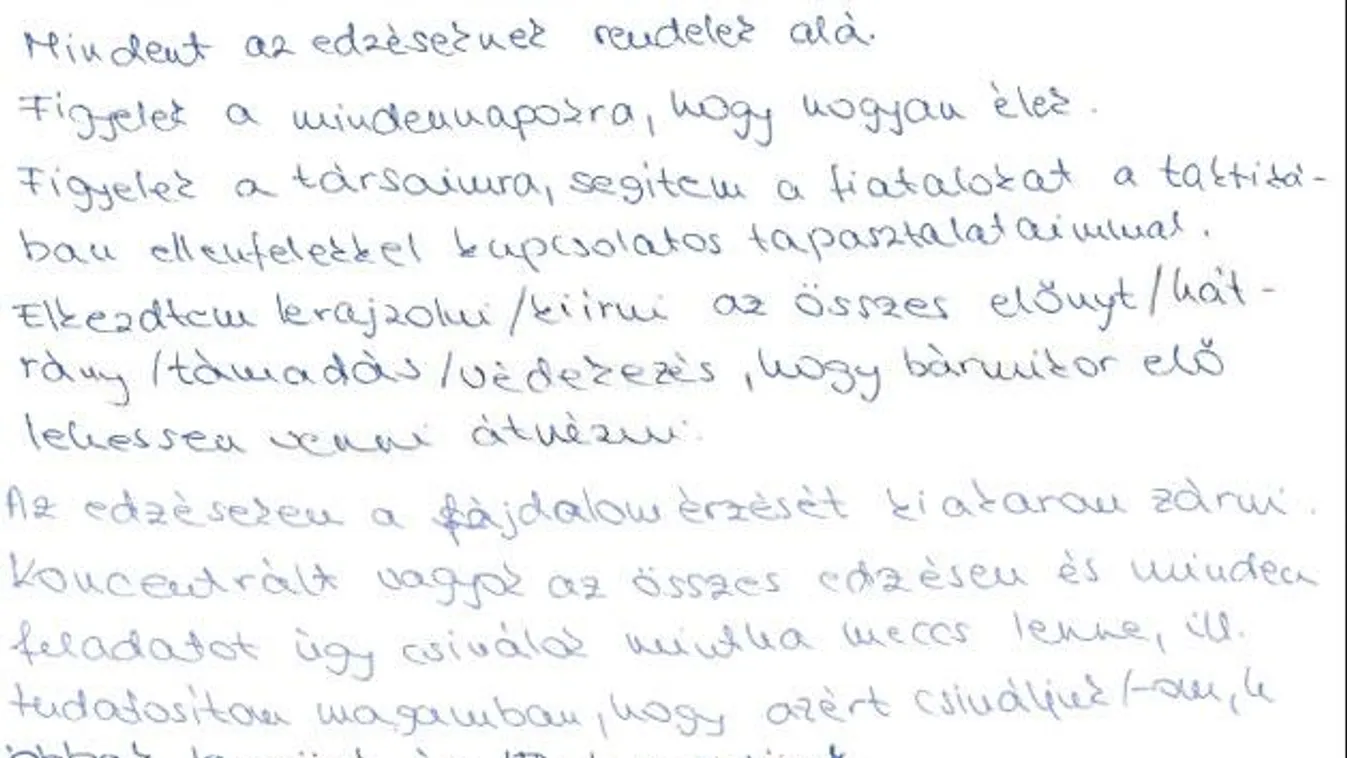 Mindent az edzéseknek rendelek alá.
Figyelek a mindennapokra, hogy hogyan élek.
Figyelek a társaimra, segitem a fiatalokat a taktiká-
ban ellenfelekkel kapcsolatos tapasztalataimmal.
Elkezdtem lerajzolni/kiirni az összes előnyt/hát-
rány/támadás/védekezés, hogy bármikor elő
lehessen venni átnézni.
Az edzéseken a fájdalom érzését kiakarom zárni.
Koncentrált vagyok az összes edzésen és minden
feladatot úgy csinálok mintha meccs lenne, ill.
tudatositom magamban, hogy azért csináljuk/-om, h